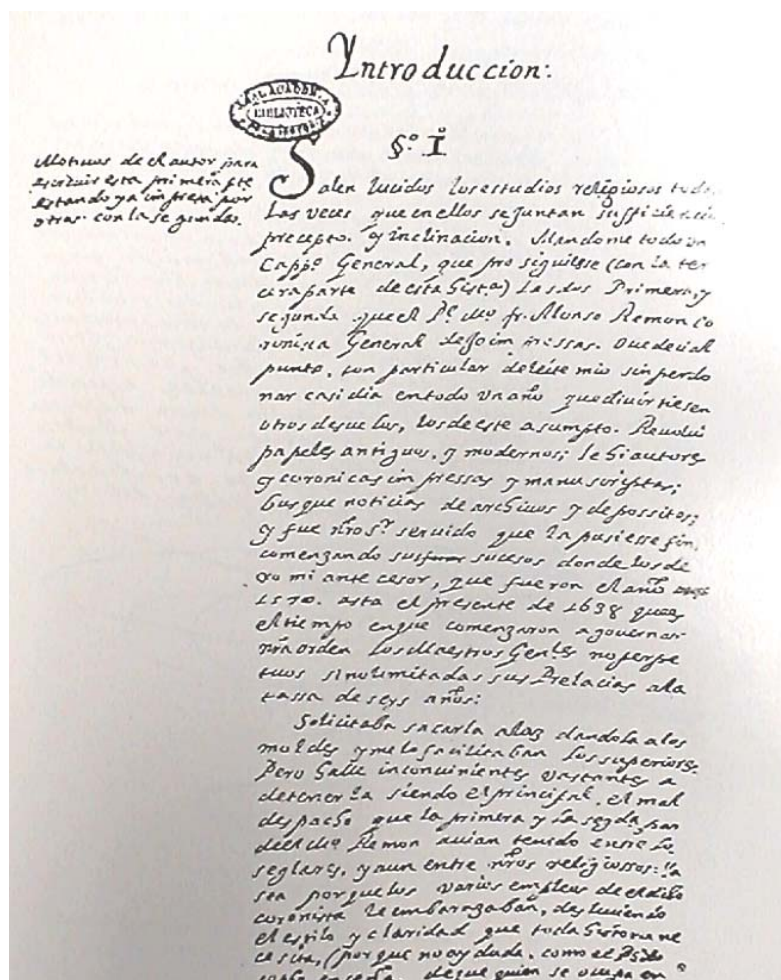 Introduccion:
REAL ACADEMIA
BIBLIOTECA
DE LA HISTORIA
§.º I
Motivos de el autor para
escriuir esta primera pte
estando ya impresa por
otras con la segunda.
Salen lucidos los estudios religiosos todas
Las veces que en ellos se juntan sufficiencia
precepto. y inclinacion. Mandome todo un
Cappº General, que prosiguiese (con la ter
cera parte de esta Histª) Las dos Primera, y
segunda que el Pe. Mº fr. Alonso Remon Co
ronista General dejo impressas. Ovedeci al
punto, con particular deleite mio sin perdo
nar casi dia en todo un año que diuirtiesen
otros desuelos, los de este asumpto. Revolui
papeles antiguos, y modernos; lehi autores
y coronicas impressas y manuscriptas;
busque noticias de archivos y depossitos;
y fue nro Sr seruido que la pusiesse fin,
comenzando sus sucesos donde los de
xo mi antecesor, que fueron el año
1570. asta el presente de 1638 que es
el tiempo en que comenzaron a gouernar
nra orden Los Maestros Genles no perpe
tuos sino limitadas sus Prelacias a la
tassa de seys años:
Solicitaba sacarla a luz dandola a los
moldes y me lo facilitaban Los superiores.
Pero halle inconuinientes vastantes a
detenerla siendo el principal, el mal
despacho que la primera y la segda par
de el Mº Remon auian tenido entre los
seglares, y aun entre nros religiossos: Ya
sea porque los varios empleos de el dicho
coronista le embarazaban, desluciendo
el estilo y claridad que toda historia ne
cesita, (porque no ay duda, como el
de que quien se ocupa en